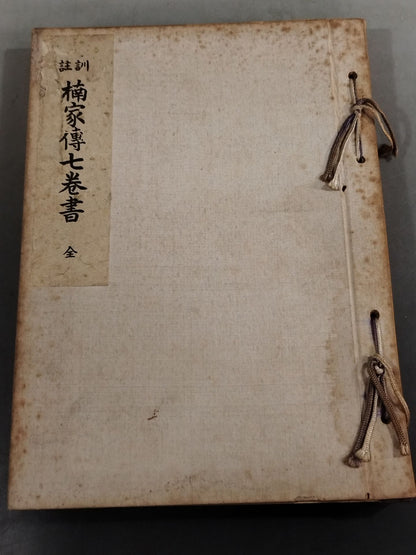 訓註
楠家傳七巻書
全